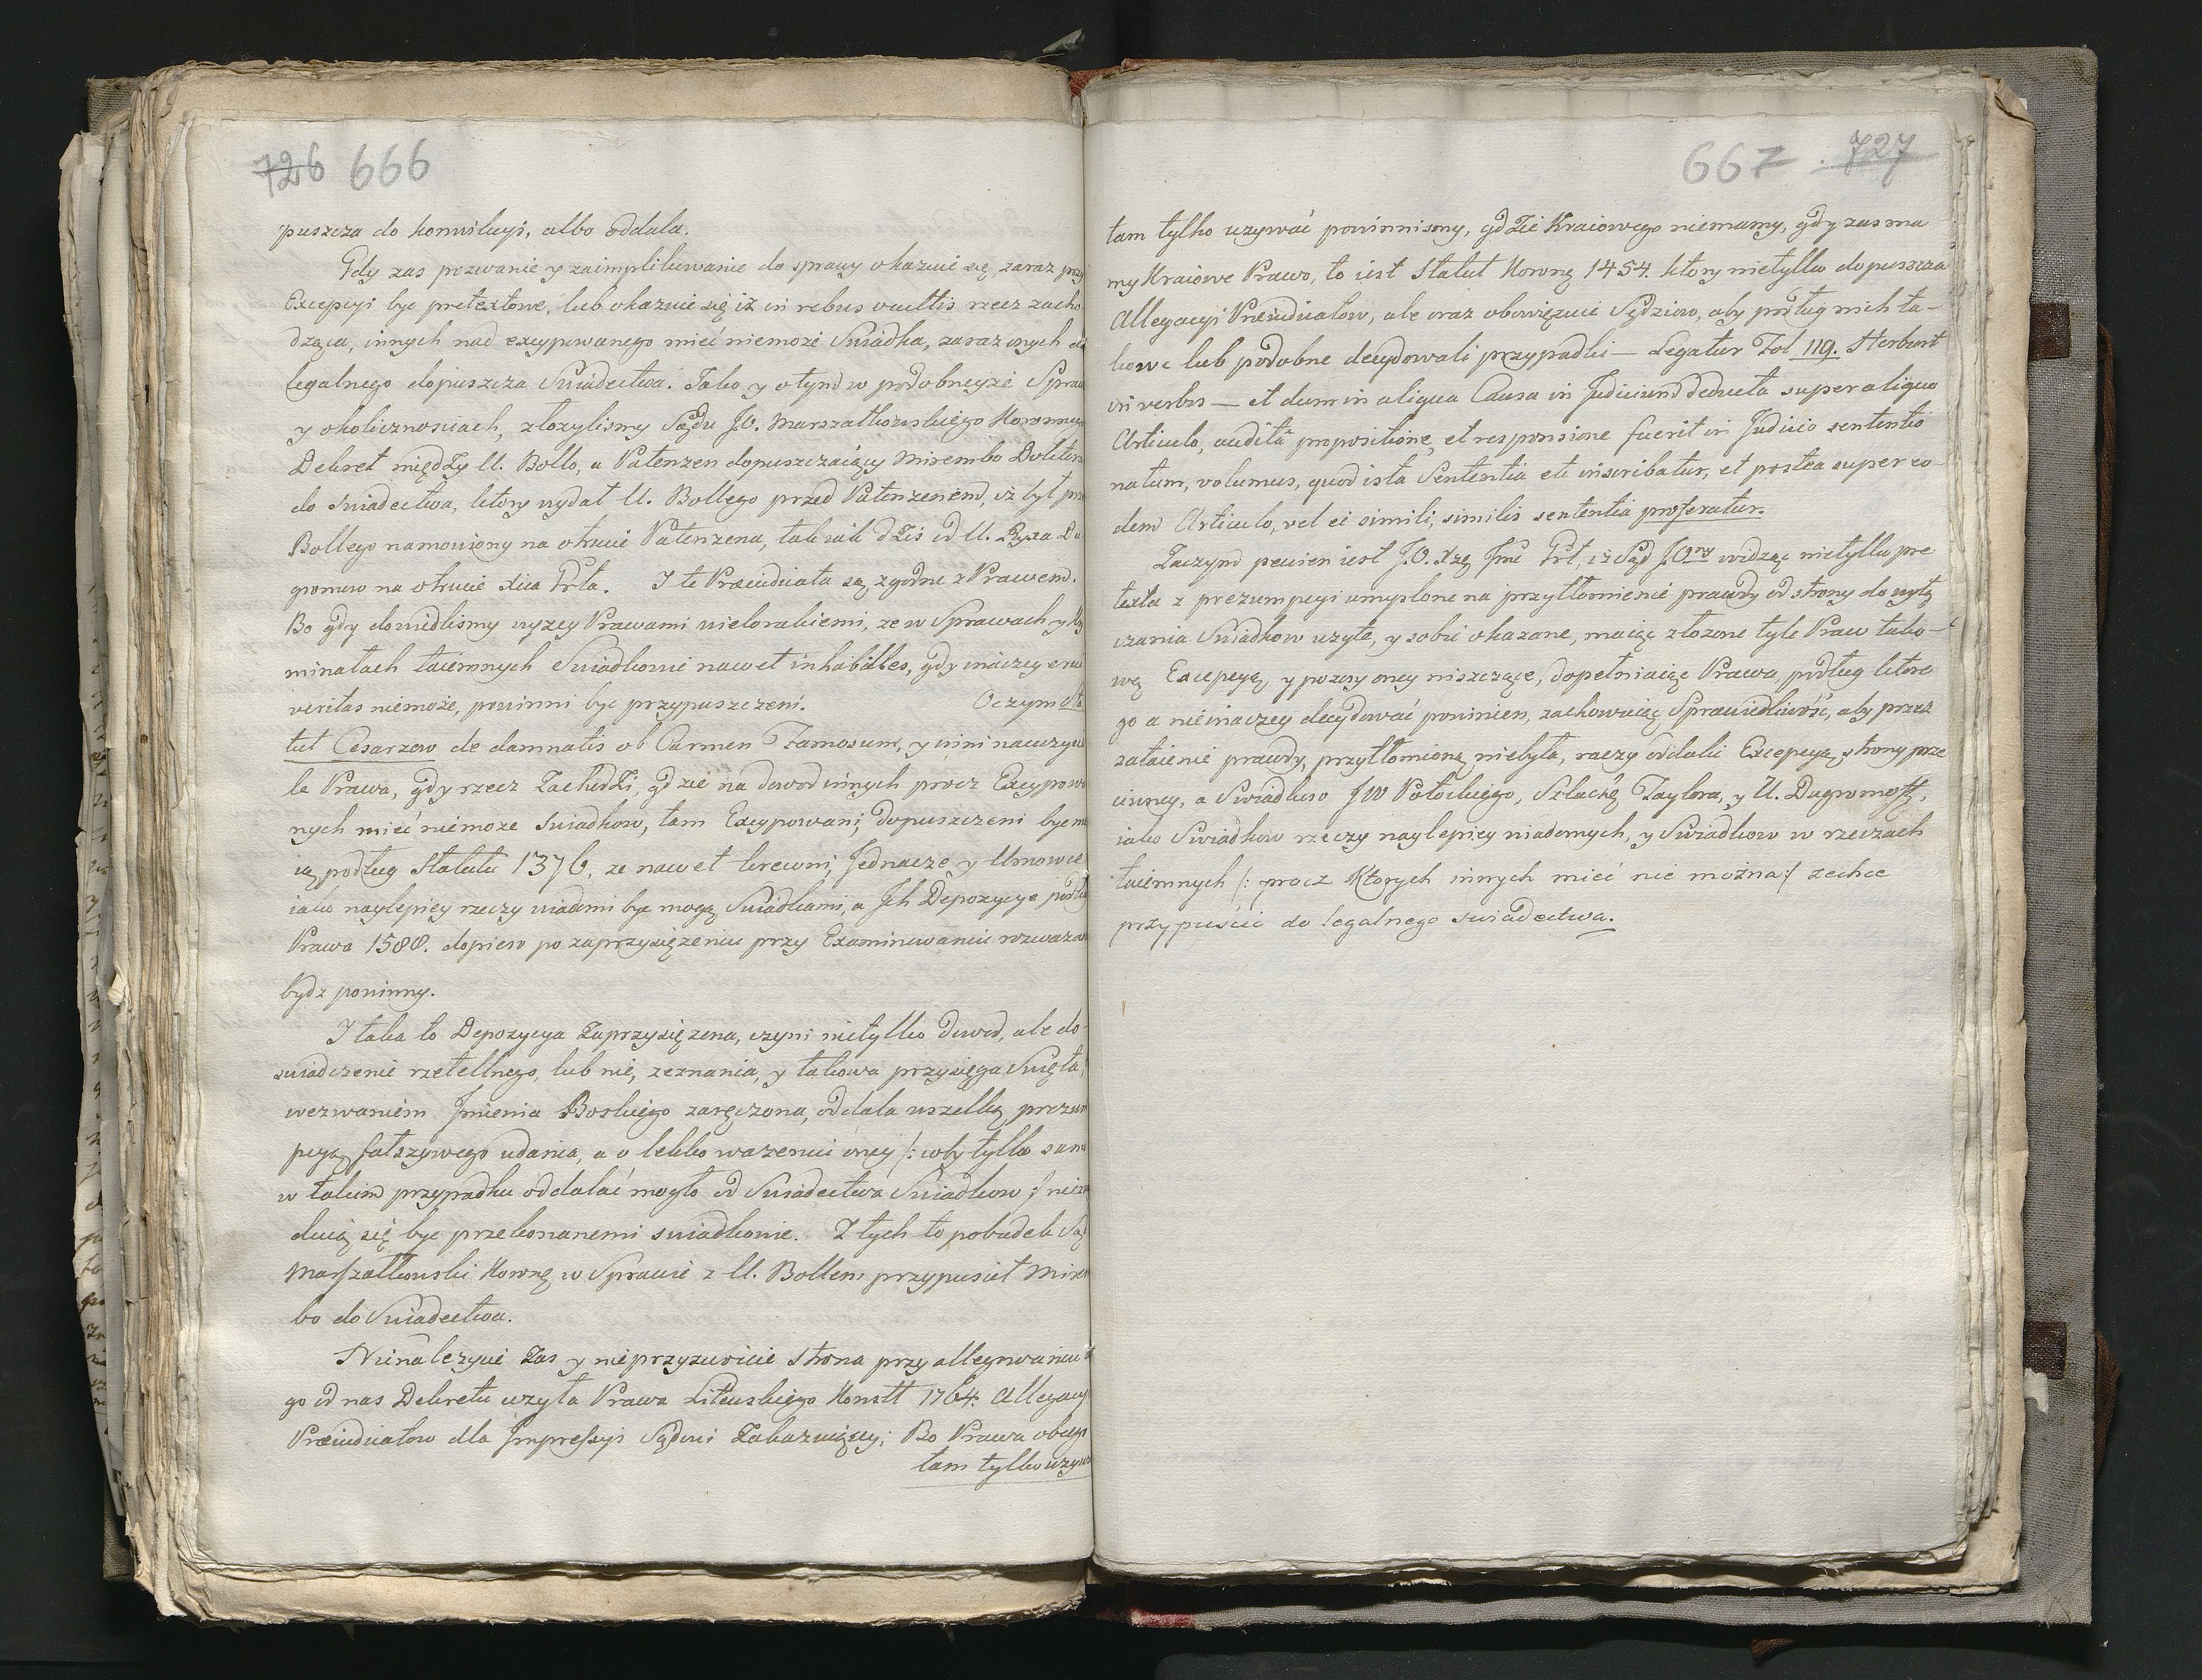 726 666
puszcza do konwikcyi, albo oddala.
Gdy zas pozwanie y zaimplikowanie do sprawy okazuie się zaraz przy
Excepcyi byc pretextowe, lub okazuie się iż in rebus occultis rzecz zacho
dząca, innych nad excypowanego mieć niemoże Swiadka, zaraz onych do
legalnego dopuszcza Swiadectwa. Jako y o tym w podobneyże Spraw
y okolicznosciach, złozylismy Sądu J.W. Marszałkowskiego Koronneg
Dekret między U. Bollo, a Patenzen dopuszczaiący Mirembo Doktora
do swiadectwa, ktory wydał U. Bollego przed Patenzenem, iż był prze
Bollego namowiony na otrucie Patenzena, tak iak dziś od U. Ryxa Du
gromow na otrucie Xcia Prta. I te Præiudicata są zgodne z Prawem.
Bo gdy dowiedlismy wyzey Prawami wielorakiemi, ze w Sprawach y Kry
minałach taiemnych Swiadkowie nawet inhabiles, gdy inaczey erui
veritas niemoże, powinni byc przypuszczeni. Oczym Sta
tut Cesarzow de damnatis ob Carmen Famosum, y inni nauczyc
le Prawa, gdy rzecz zachodzi, gdzie na dowod innych procz Excypowa
nych mieć niemoze swiadkow, tam Excypowani dopuszczeni byc ma
ią podług Statutu 1376, ze nawet krewni, Jednacze y Umowce
iako naylepiey rzeczy wiadomi byc mogą Swiadkami, a Ich Depozycye podłu
Prawa 1588. dopiero po zaprzysiężeniu przy Examinowaniu rozwaza
bydz powinny.
I taka to Depozycya Zaprzysięzona, czyni nietylko dowod, ale do
swiadczenie rzetelnego, lub nie, zeznania, y takowa przysięga Swięta,
wezwaniem Imienia Boskiego zaręczona, oddala wszelką prezum
pcyą fałszywego udania, a o lekko wazeniu oney /: coby tylko samo
w takim przypadku oddalać mogło od Swiadectwa Swiadkow :/ niezn
duią się byc przekonanemi swiadkowie. Z tych to pobudek Są
Marszałkowski Kornną w Sprawie z U. Bollem przypuscił Mirem
bo do Swiadectwa.
Nienalezycie Zas y nieprzyzwoicie strona przy allegowaniu
go od nas Dekretu uzyła Prawa Litewskiego Konstt 1764. Allegacy
Præiudicatow dla Impressyi Sądowi Zakazuiącey; Bo Prawa obceg
tam tylko uzyw
667 727
tam tylko uzywać powinnismy, gdzie Kraiowego niemamy, gdy zas ma
my Kraiowe Prawo, to iest Statut Koronny 1454. ktory nietylko dopuszcza
Allegacyi Preiudicatow, ale oraz obowięzuie Sędziow, aby podług nich ta-
kowe lub podobne decydowali przypadki — Legatur Fol 119. Herburt
in verbis — et dum in aliqua Causa in Judicium deducta super aliquo
Articulo, audita propositione, et responsione fuerit in Judicio sententio
natum, volumus, quod ista Sententia etc inscribatur, et postea super eo
dem Articulo, vel ei simili, similis sententia proferatur.
Zaczym pewien iest J.O. Xżę Jmć Prt, iż Sąd J.O.ny widząc nietylko pre
texta z prezumpcyi umyslone na przytłomienie prawdy od strony do wyłą
czania Swiadkow uzyte, y sobie okazane, maiąc złozone tyle Praw tako-
wą Excepcyą y pozory oney niszczące, dopełniaiąc Prawa, podług ktore
go a nieinaczey decydować powinien, zachowuiąc Sprawiedliwość, aby przez
zataienie prawdy, przytłomioną niebyła, raczy oddalić Excepcyą strony prze
ciwney, a Swiadkow JW Potockiego, Szlachę Taylora, y U. Dugromoff,
iako Swiadkow rzeczy naylepiey wiadomych, y Swiadkow w rzeczach
taiemnych /: procz Ktorych innych mieć nie można :/ zechce
przypuścić do legalnego swiadectwa.